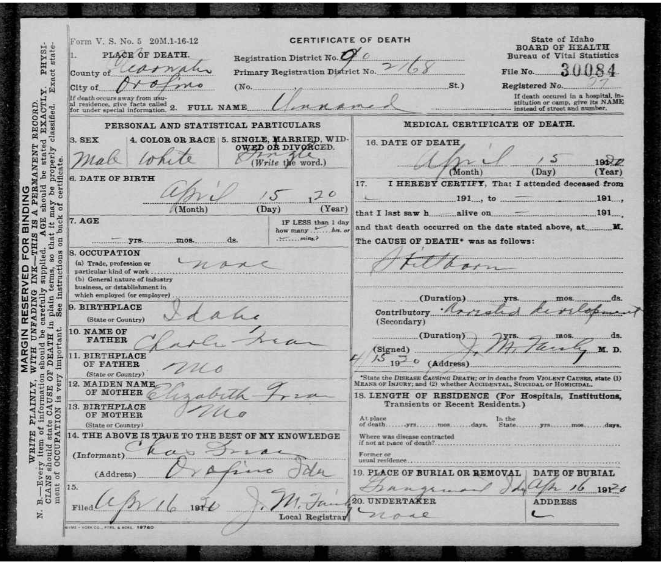 Form V. S. No. 5 20M.1-16-12
CERTIFICATE OF DEATH
State of Idaho
BOARD OF HEALTH
Bureau of Vital Statistics
1. PLACE OF DEATH.
County of Clearwater
City of Orofino
If death occurs away from usual residence, give facts called for under special information.
Registration District No. 90
Primary Registration District No. 2168
(No. St.)
File No. 30084
Registered No. 27
If death occurred in a hospital, institution or camp, give its NAME instead of street and number.
2. FULL NAME Unnamed
PERSONAL AND STATISTICAL PARTICULARS
3. SEX
Male
4. COLOR OR RACE
White
5. SINGLE, MARRIED, WIDOWED OR DIVORCED.
Single
(Write the word.)
6. DATE OF BIRTH
April 15, 20
(Month) (Day) (Year)
7. AGE
yrs. mos. ds.
IF LESS than 1 day
how many hrs. or
mins.?
8. OCCUPATION
(a) Trade, profession or
particular kind of work none
(b) General nature of industry
business, or establishment in
which employed (or employer)
9. BIRTHPLACE
(State or Country) Idaho
10. NAME OF
FATHER Charles
11. BIRTHPLACE
OF FATHER Mo
(State or Country)
12. MAIDEN NAME
OF MOTHER Elizabeth
13. BIRTHPLACE
OF MOTHER Mo
(State or Country)
14. THE ABOVE IS TRUE TO THE BEST OF MY KNOWLEDGE
(Informant) Chas
(Address) Orofino Ida
15.
Filed Apr 16 1920 J. M.
Local Registrar
MEDICAL CERTIFICATE OF DEATH.
16. DATE OF DEATH
April 15 1920
(Month) (Day) (Year)
17. I HEREBY CERTIFY, That I attended deceased from
191 , to 191 ,
that I last saw h alive on 191 ,
and that death occurred on the date stated above, at M.
The CAUSE OF DEATH* was as follows:
Stillborn
(Duration) yrs. mos. ds.
Contributory Arrested Development
(Secondary)
(Duration) yrs. mos. ds.
(Signed) J. M. M. D.
4/15 1920 (Address)
*State the DISEASE CAUSING DEATH; or in deaths from VIOLENT CAUSES, state (1)
MEANS OF INJURY; and (2) whether ACCIDENTAL, SUICIDAL OR HOMICIDAL.
18. LENGTH OF RESIDENCE (For Hospitals, Institutions,
Transients or Recent Residents.)
At place
of death yrs. mos. days.
In the
State yrs. mos. days.
Where was disease contracted
if not at place of death?
Former or
usual residence
19. PLACE OF BURIAL OR REMOVAL
Ida
DATE OF BURIAL
Apr 16 1920
20. UNDERTAKER
none
ADDRESS
MARGIN RESERVED FOR BINDING
WRITE PLAINLY, WITH UNFADING INK—THIS IS A PERMANENT RECORD.
N. B.—Every item of information should be carefully supplied. AGE should be stated EXACTLY. PHYSICIANS should state CAUSE OF DEATH in plain terms, so that it may be properly classified. Exact statement of OCCUPATION is very important. See instructions on back of certificate.